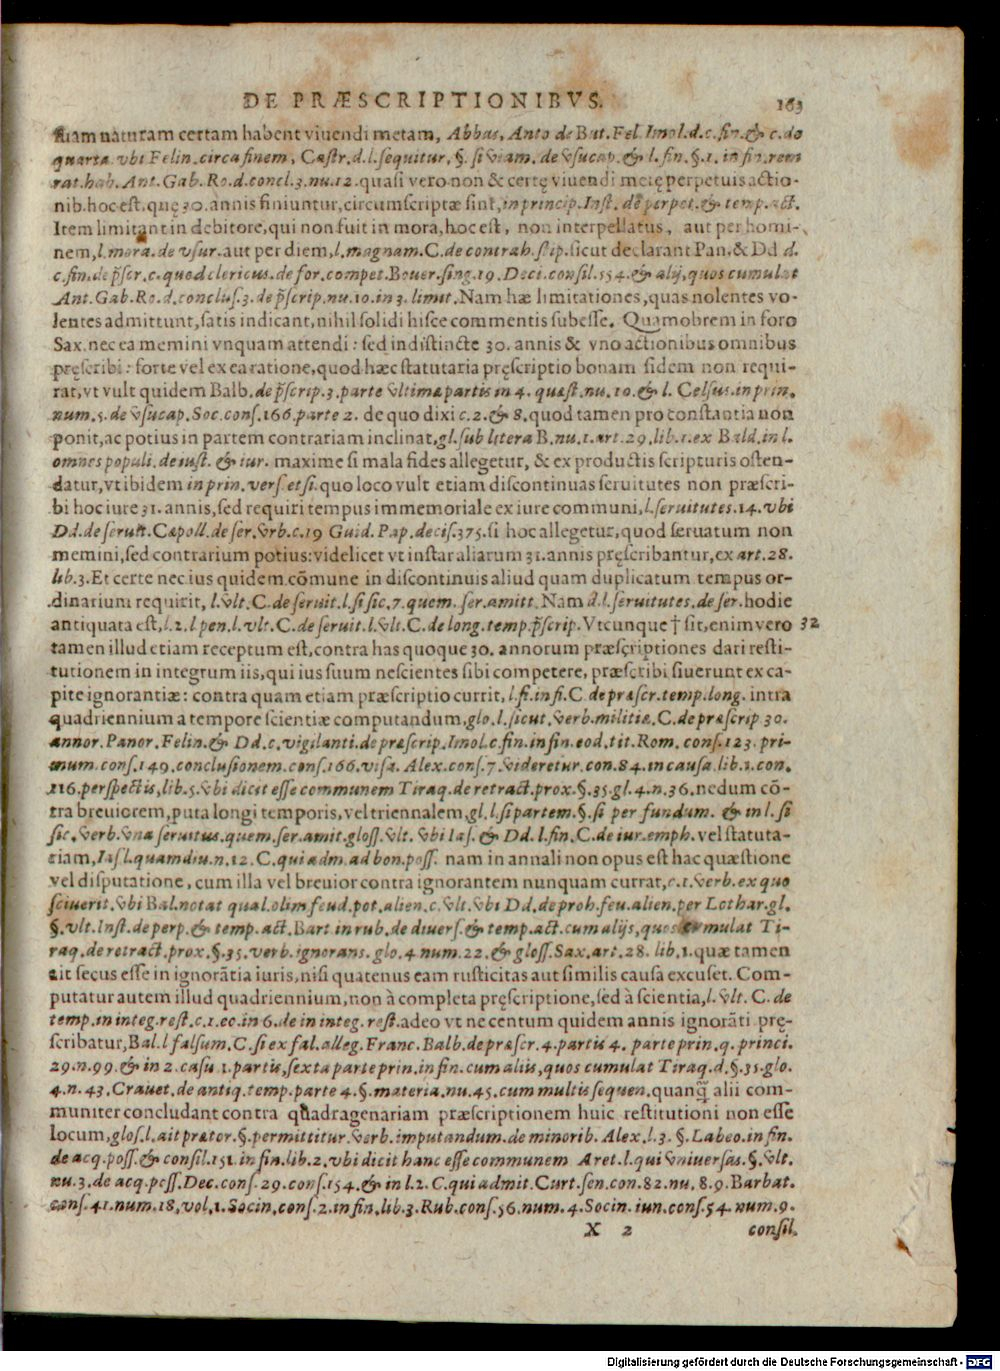 DE PRÆSCRIPTIONIBVS. 163
etiam naturam certam habent viuendi metam, Abbas, Anto de But. Fel. Imol. d. c. fin. & c. de
quarta vbi Felin. circa finem, Castr. d. l. sequitur, §. si viam. de vsucap. & l. fin. §. 1. in fin. rem
rat. hab. Ant. Gab. Ro. d. concl. 3. nu. 12. quasi vero non & certę viuendi metę perpetuis actio-
nib. hoc est. quę 30. annis finiuntur, circumscriptæ sint, in princip. Inst. de perpet. & temp. act.
Item limitant in debitore, qui non fuit in mora, hoc est, non interpellatus, aut per homi-
nem, l. mora. de vsur. aut per diem, l. magnam. C. de contrah. stip. sicut declarant Pan. & Dd d.
c. fin. de p̄scr. c. quod clericus. de for. compet. Bouer. sing. 19. Deci. consil. 554. & alij, quos cumulat
Ant. Gab. Ro. d. conclus. 3. de p̄scrip. nu. 10. in 3. limit. Nam hæ limitationes, quas nolentes vo-
lentes admittunt, satis indicant, nihil solidi hisce commentis subesse. Quamobrem in foro
Sax. nec ea memini vnquam attendi: sed indistincte 30. annis & vno actionibus omnibus
pręscribi: forte vel ex ea ratione, quod hæc statutaria pręscriptio bonam fidem non requi-
rat, vt vult quidem Balb. de p̄scrip. 3. parte vltima partis in 4. quæst. nu. 10. & l. Celsus. in prin.
num. 5. de vsucap. Soc. cons. 166. parte 2. de quo dixi c. 2. & 8. quod tamen pro constantia non
ponit, ac potius in partem contrariam inclinat, gl. sub litera B. nu. 1. art. 29. lib. 1. ex Bald. in l.
omnes populi. de iust. & iur. maxime si mala fides allegetur, & ex productis scripturis osten-
datur, vt ibidem in prin. vers. et si. quo loco vult etiam discontinuas seruitutes non præscri-
bi hoc iure 31. annis, sed requiri tempus immemoriale ex iure communi, l. seruitutes. 14. vbi
Dd. de seruit. Cæpoll. de ser. vrb. c. 19 Guid. Pap. decis. 375. si hoc allegetur, quod seruatum non
memini, sed contrarium potius: videlicet vt instar aliarum 31. annis pręscribantur, ex art. 28.
lib. 3. Et certe nec ius quidem cōmune in discontinuis aliud quam duplicatum tempus or-
dinarium requirit, l. vlt. C. de seruit. l. si sic. 7. quem. ser. amitt. Nam d. l. seruitutes. de ser. hodie
antiquata est, l. 2. l pen. l. vlt. C. de seruit. l. vlt. C. de long. temp. p̄scrip. Vtcunque † sit, enimvero 32
tamen illud etiam receptum est, contra has quoque 30. annorum præscriptiones dari resti-
tutionem in integrum iis, qui ius suum nescientes sibi competere, præscribi siuerunt ex ca-
pite ignorantiæ: contra quam etiam præscriptio currit, l. fi. in fi. C de præscr. temp. long. intra
quadriennium a tempore scientiæ computandum, glo. l. sicut. verb. militiæ. C. de præscrip 30.
annor. Panor. Felin. & Dd. c. vigilanti. de præscrip. Imol. c. fin. in fin. eod. tit. Rom. cons. 123. pri-
mum. cons. 149. conclusionem. cons. 166. visa. Alex. cons. 7. videretur. con. 84. in causa. lib. 1. con.
116. perspectis, lib. 5. vbi dicit esse communem Tiraq. de retract. prox. §. 35. gl. 4. n. 36. nedum cō-
tra breuiorem, puta longi temporis, vel triennalem, gl. l. si partem. §. si per fundum. & in l. si
sic. verb. vna seruitus. quem. ser. amit. gloss. vlt. vbi Ias. & Dd. l. fin. C. de iur. emph. vel statuta-
riam, Ias. l. quamdiu. n. 12. C. qui adm. ad bon. poss. nam in annali non opus est hac quæstione
vel disputatione, cum illa vel breuior contra ignorantem nunquam currat, c. 1. verb. ex quo
sciuerit. vbi Bal. notat qual. olim feud. pot. alien. c. vlt. vbi Dd. de proh. feu. alien. per Lothar. gl.
§. vlt. Inst. de perp. & temp. act. Bart in rub. de diuers. & temp. act. cum alijs, quos cumulat Ti-
raq. de retract. prox. §. 35. verb. ignorans. glo. 4 num. 22. & gloss. Sax. art. 28. lib. 1. quæ tamen
ait secus esse in ignorātia iuris, nisi quatenus eam rusticitas aut similis causa excuset. Com-
putatur autem illud quadriennium, non à completa pręscriptione, sed à scientia, l. vlt. C. de
temp. in integ. rest. c. 1. eo. in 6. de in integ. rest. adeo vt ne centum quidem annis ignorāti prę-
scribatur, Bal. l falsum. C. si ex fal. alleg. Franc. Balb. de præscr. 4. partis 4. parte prin. q. princi.
29. n. 99. & in 2. casu 1. partis, sexta parte prin. in fin. cum aliis, quos cumulat Tiraq. d. §. 35. glo.
4. n. 43. Crauet. de antiq. temp. parte 4. §. materia. nu. 45. cum multis sequen. quanq̃ alii com-
muniter concludant contra quadragenariam præscriptionem huic restitutioni non esse
locum, glos. l. ait prætor. §. permittitur. verb. imputandum. de minorib. Alex. l. 3. §. Labeo. in fin.
de acq. poss. & consil. 151. in fin. lib. 2. vbi dicit hanc esse communem Aret. l. qui vniuersas. §. vlt.
nu. 3. de acq. poss. Dec. cons. 29. cons. 154. & in l. 2. C. qui admit. Curt. sen. con. 82. nu. 8. 9. Barbat.
cons. 41. num. 18, vol. 1. Socin. cons. 2. in fin. lib. 3. Rub. cons. 56. num. 4. Socin. iun. cons. 54. num. 9.
X 2 consil.
Digitalisierung gefördert durch die Deutsche Forschungsgemeinschaft - DFG